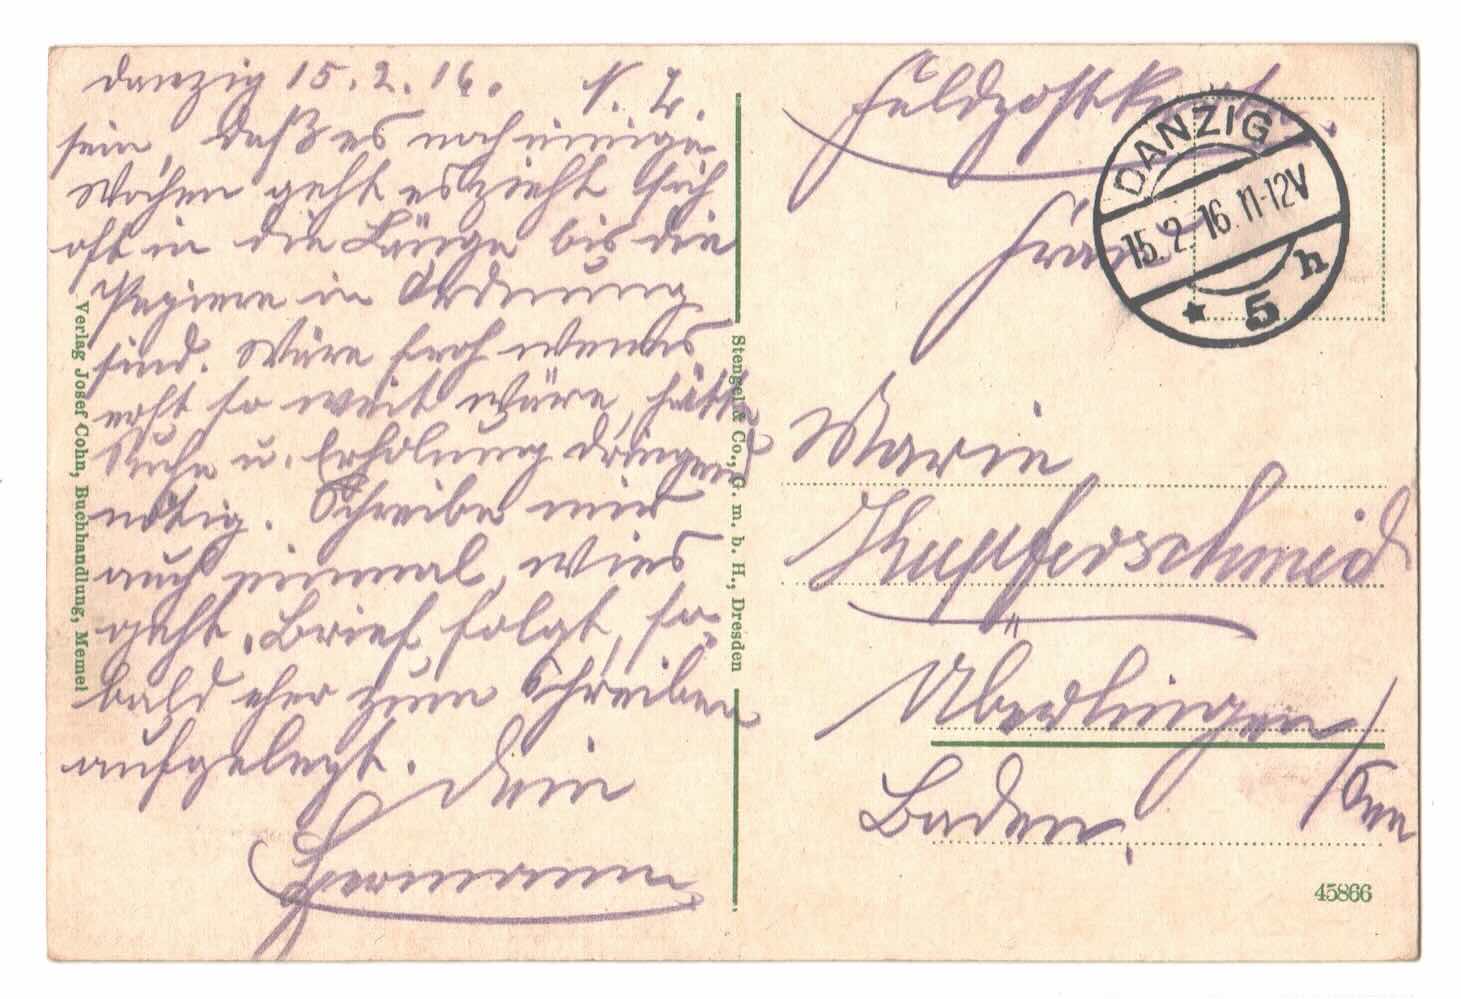 Danzig 15.2.16. N. 2.
sein, daß es noch einige
Wochen geht es zieht sich
oft in die Länge bis die
Papiere in Ordnung
sind. Wäre froh wenns
erst so weit wäre, hätte
Ruhe u. Erholung dringend
nötig. Schreibe mir
auch einmal, wies
geht, Brief folgt, so
bald eher zum Schreiben
aufgelegt. Dein
Hermann
Verlag Josef Cohn, Buchhandlung, Memel
Stengel & Co., G. m. b. H., Dresden
Feldpostkarte.
Frau
DANZIG
15.2.16. 11-12V
* 5 h
Marie
Kupferschmid
Überlingen
/See
Baden,
45866